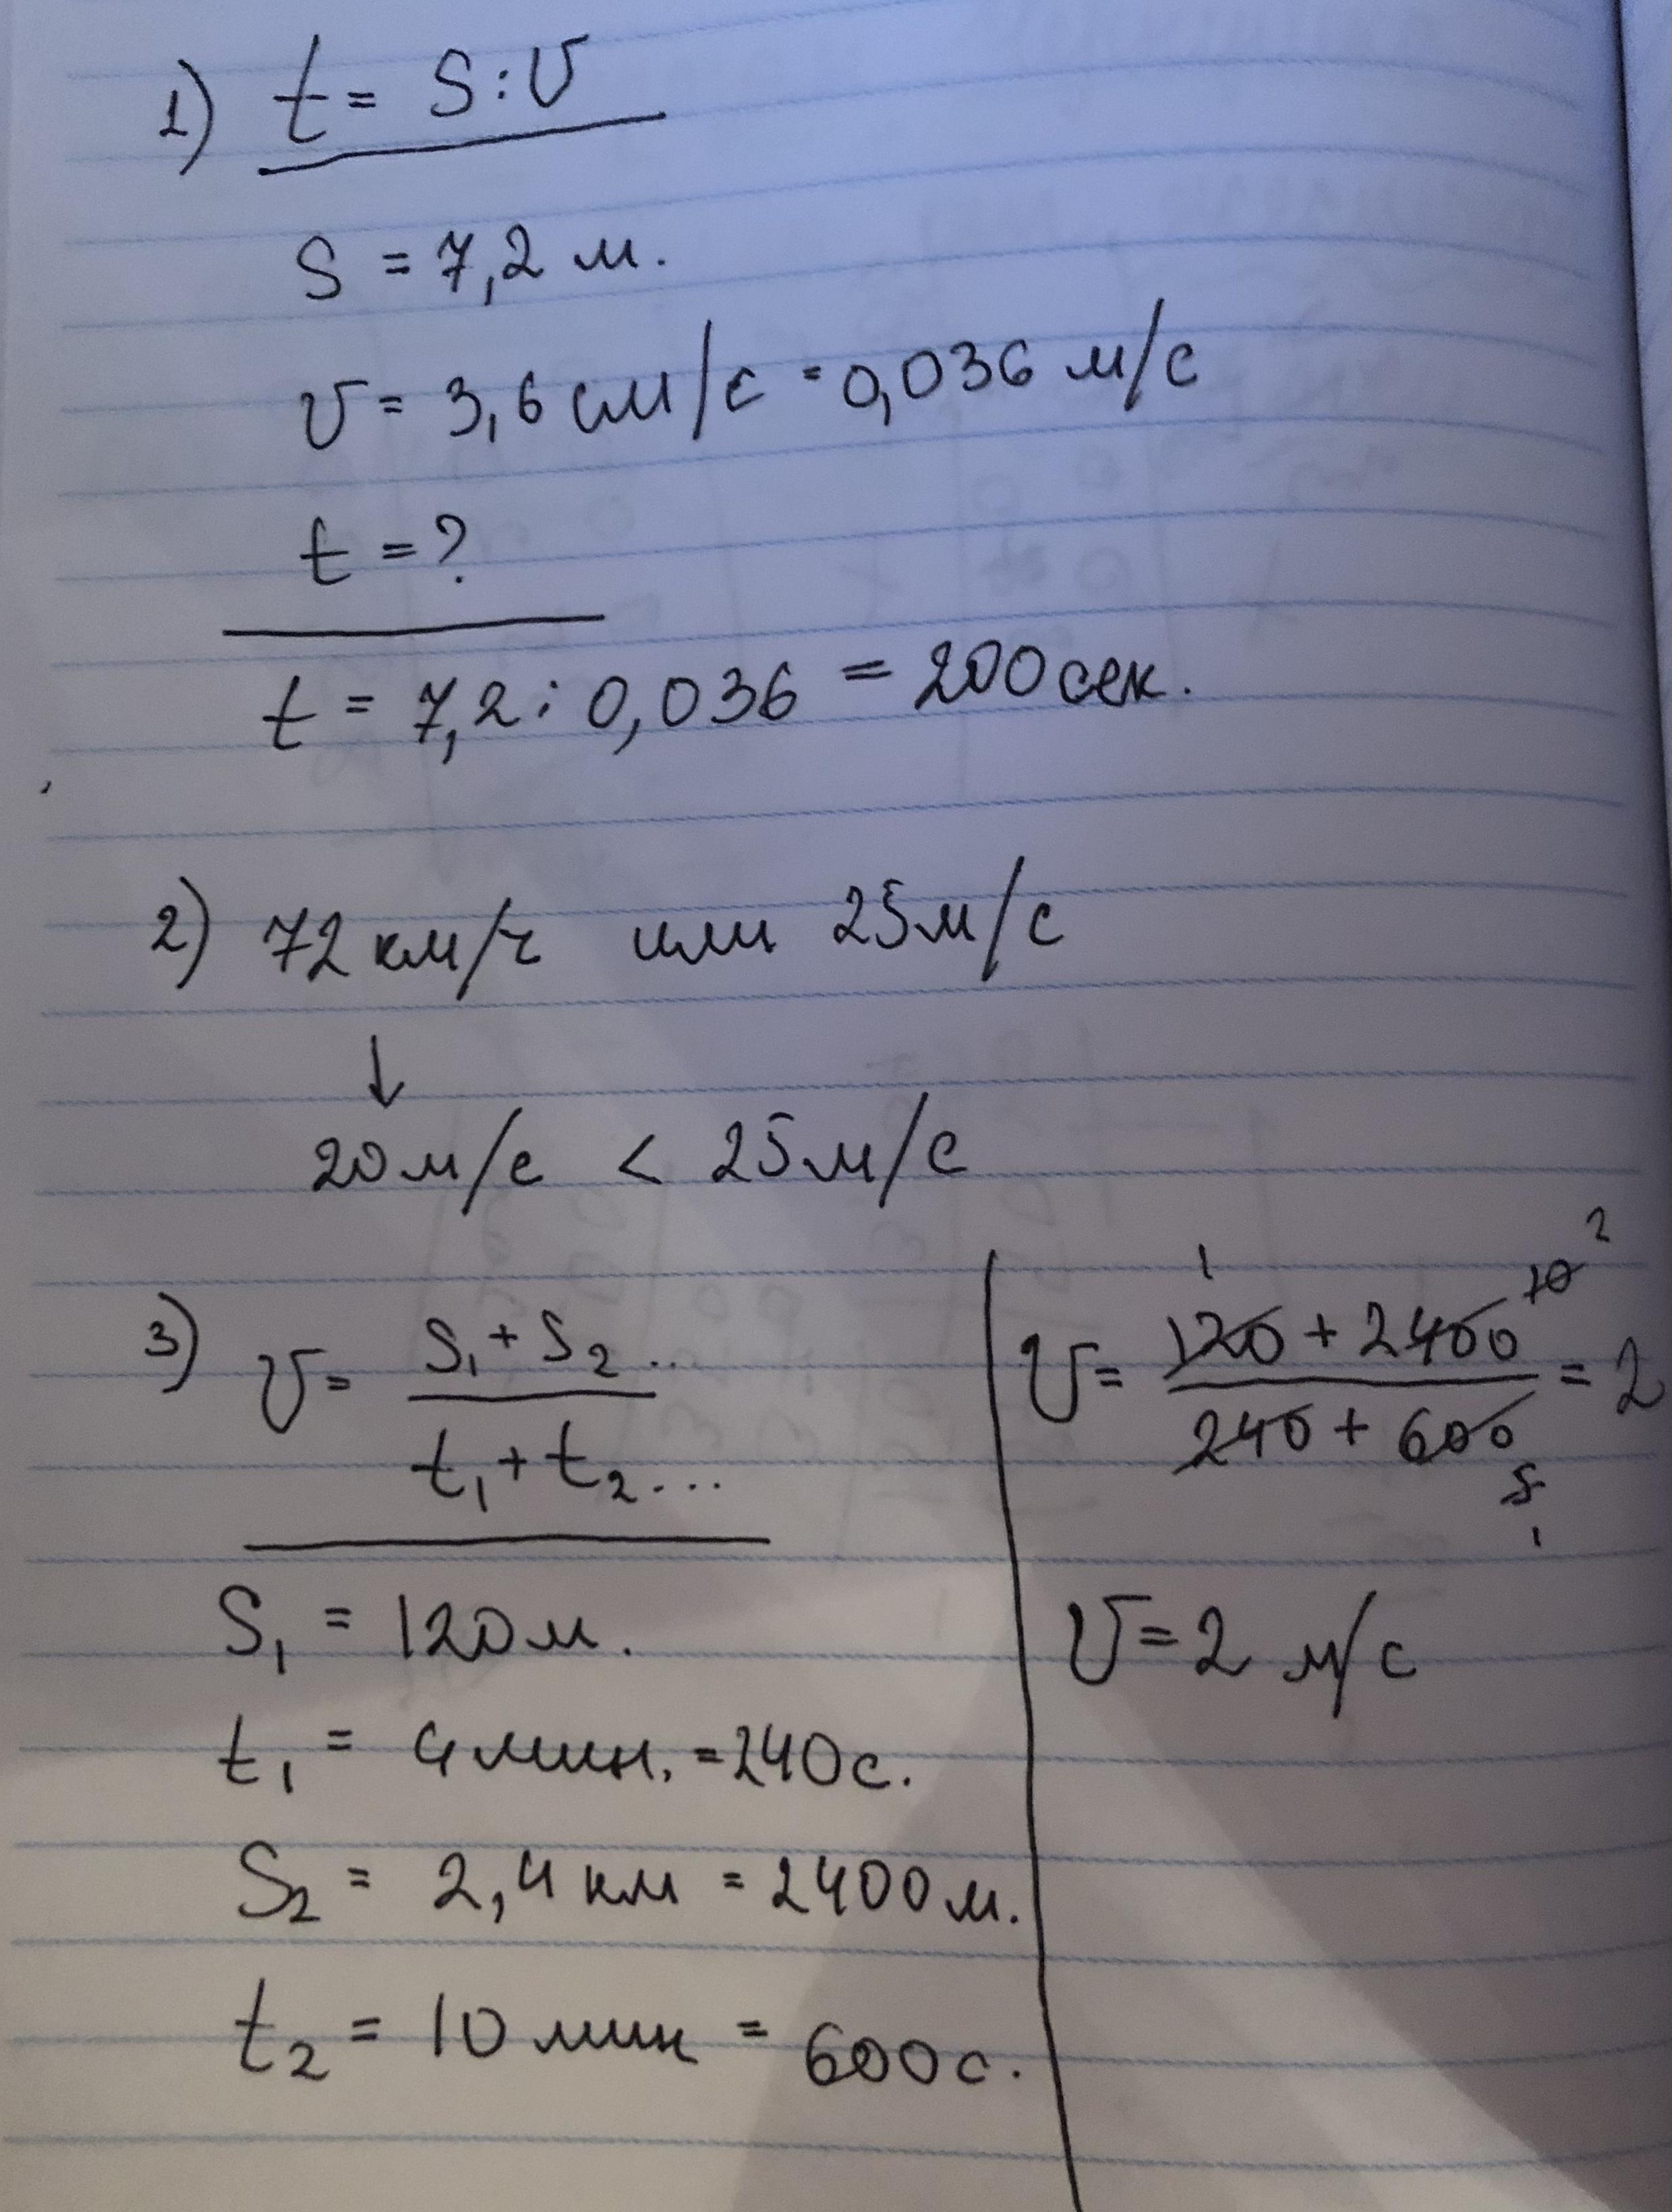 1) t = S : V
S = 7,2 м.
V = 3,6 см/с = 0,036 м/с
t = ?
t = 7,2 : 0,036 = 200 сек.
2) 72 км/ч или 25 м/с
↓
20 м/с < 25 м/с
3) V = S₁ + S₂ .. / t₁ + t₂ ...
S₁ = 120 м.
t₁ = 4 мин. = 240 с.
S₂ = 2,4 км = 2400 м.
t₂ = 10 мин = 600 с.
1 10 2
V = 120 + 2400 / 240 + 600 = 2
5
1
V = 2 м/с